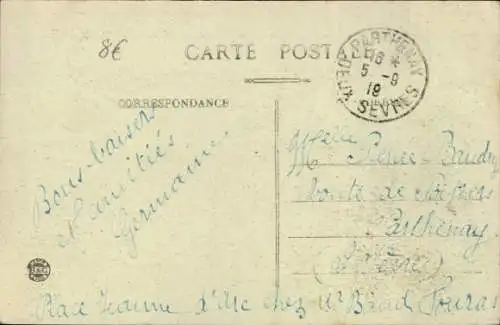 8€
CARTE POSTALE
PARTHENAY
16 *
5 - 9
19
DEUX SEVRES
CORRESPONDANCE
Bons baisers
et amitiés
Germaine
Melle Renée Baudry
route de Poitiers
Parthenay
Place Jeanne d'Arc chez Mr Fouras